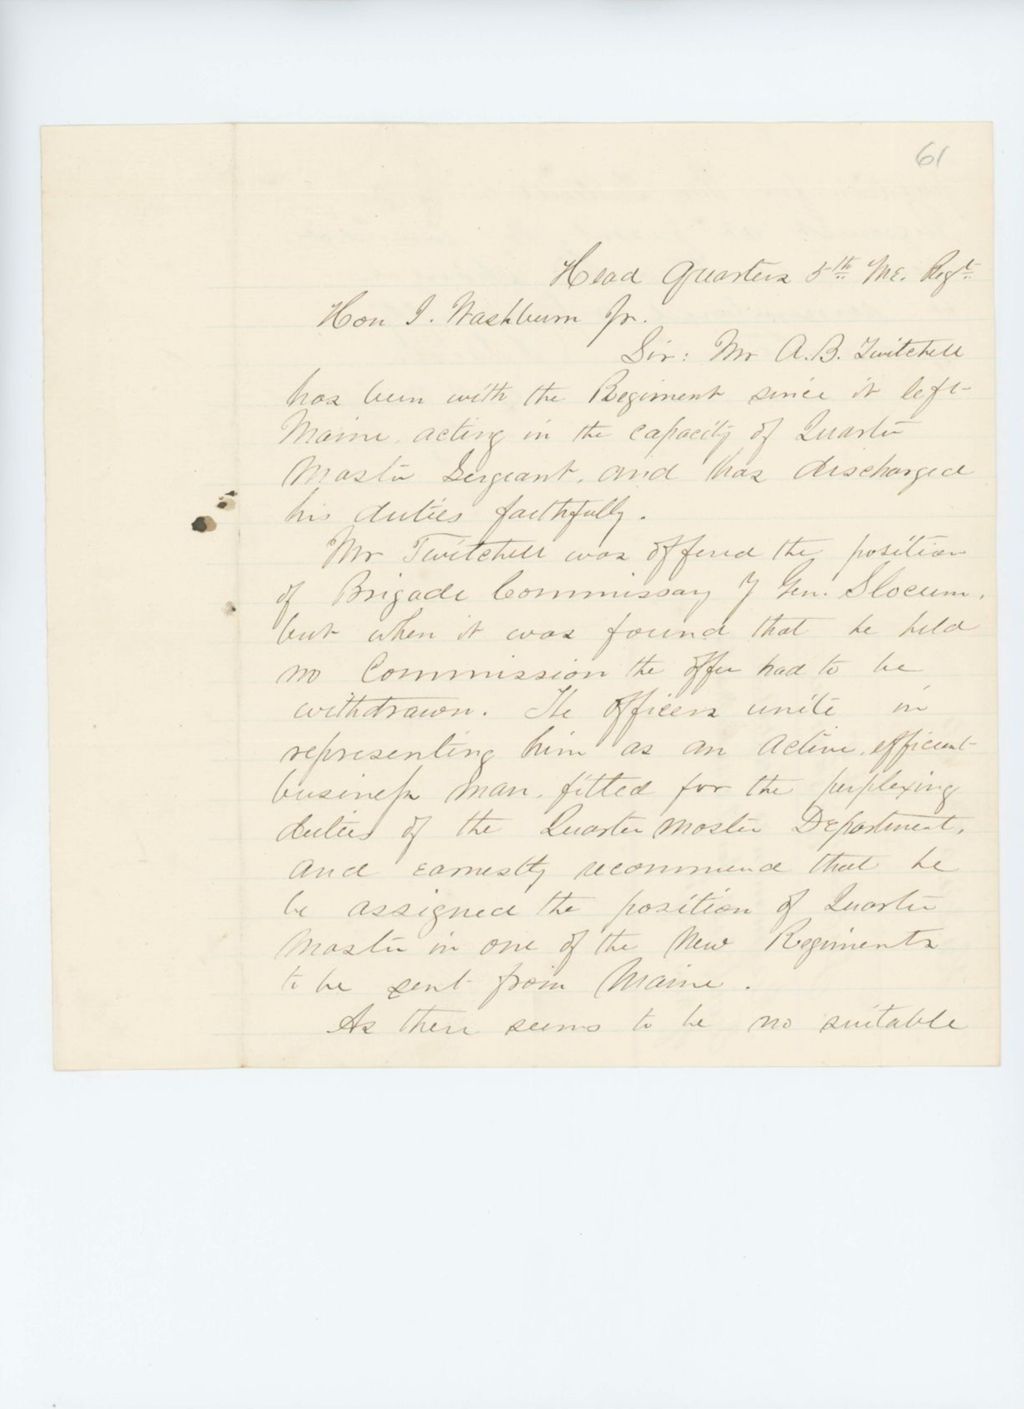 61
Head Quarters 5th Me. Regt.
Hon I. Washburn Jr.
Sir: Mr A. B. Twitchell
has been with the Regiment since it left
Maine, acting in the capacity of Quarter
Master Sergeant, and has discharged
his duties faithfully.
Mr Twitchell was offered the position
of Brigade Commissary of Gen. Slocum,
but when it was found that he held
no Commission the offer had to be
withdrawn. The officers unite in
representing him as an active, efficient
business man, fitted for the perplexing
duties of the Quarter Master Department,
and earnestly recommend that he
be assigned the position of Quarter
Master in one of the New Regiments
to be sent from Maine.
As there seems to be no suitable